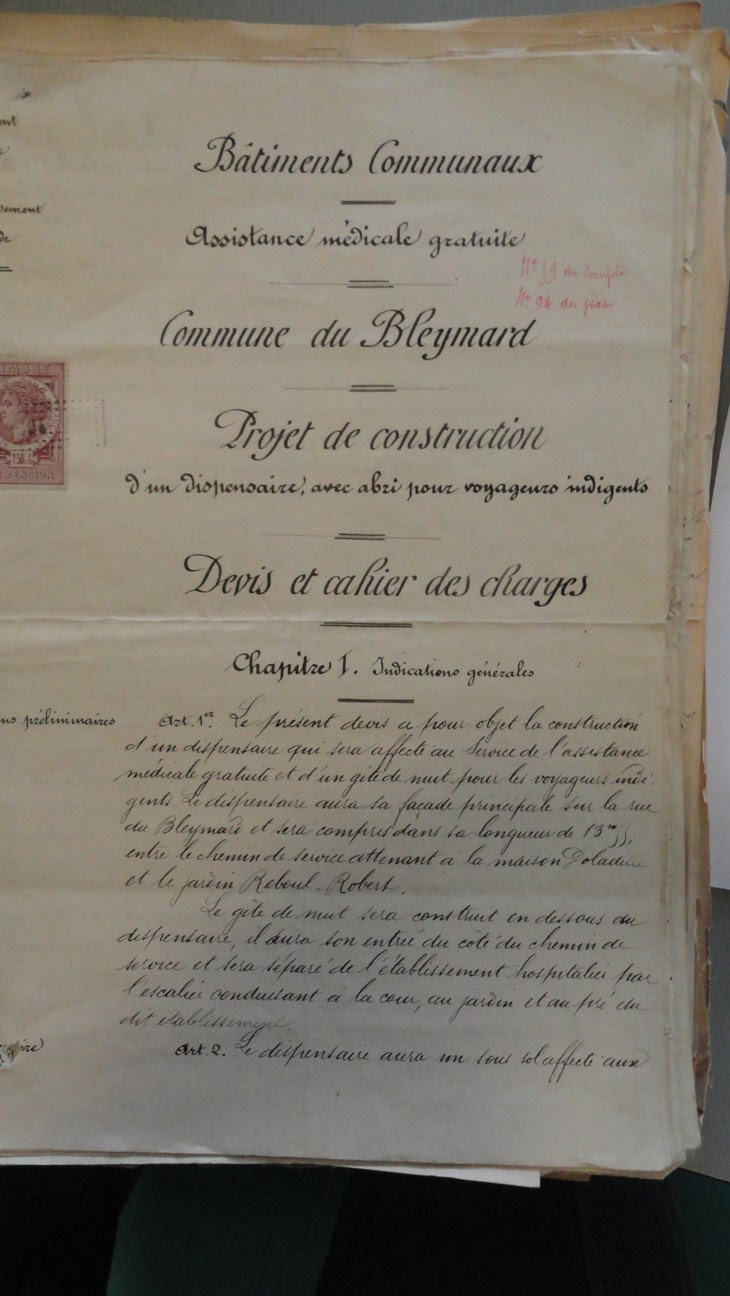 Bâtiments Communaux
Assistance médicale gratuite
N° 59 du compte
N° 94 des pièces
Commune du Bleymard
Projet de construction
d'un dispensaire, avec abri pour voyageurs indigents
Devis et cahier des charges
Chapitre I. Indications générales
préliminaires
Art. 1er. Le présent devis a pour objet la construction
d'un dispensaire qui sera affecté au Service de l'assistance
médicale gratuite et d'un gîte de nuit pour les voyageurs indi-
gents. Le dispensaire aura sa façade principale sur la rue
du Bleymard et sera compris dans sa longueur de 13m 55,
entre le chemin de service attenant à la maison
et le jardin Reboul-Robert.
Le gîte de nuit sera construit en dessous du
dispensaire, il aura son entrée du côté du chemin de
service et sera séparé de l'établissement hospitalier par
l'escalier conduisant à la cour, au jardin et au pré du
dit établissement.
Art. 2. Le dispensaire aura un sous-sol affecté aux